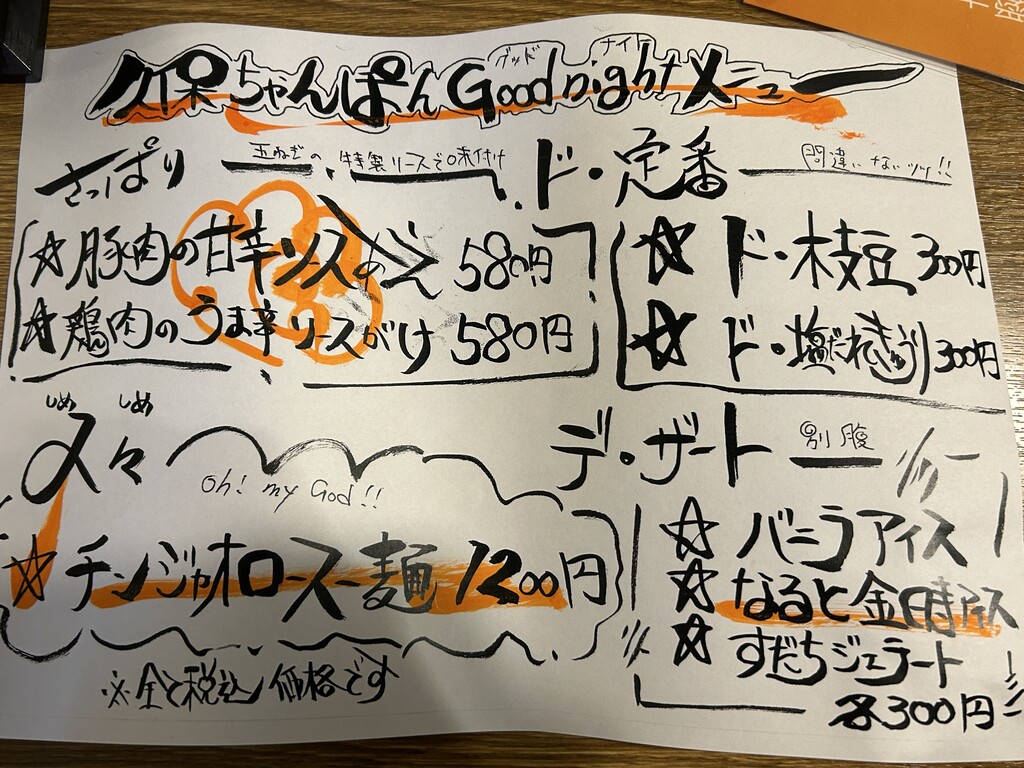 グッド ナイト
久保ちゃんぽん Good night メニュー
さっぱり 玉ねぎの特製ソースで味付け
☆豚肉の甘辛ソースあえ 580円
☆鶏肉のうま辛ソースがけ 580円
ド・定番 間違いないッッ!!
☆ ド・枝豆 300円
☆ ド・塩だれきゅうり 300円
しめ しめ
〆々
Oh! my God!!
☆チンジャオロースー麺 1200円
※全て税込価格です
デ・ザート 別腹
☆ バニラアイス
☆ なると金時アイス
☆ すだちジェラート
各300円